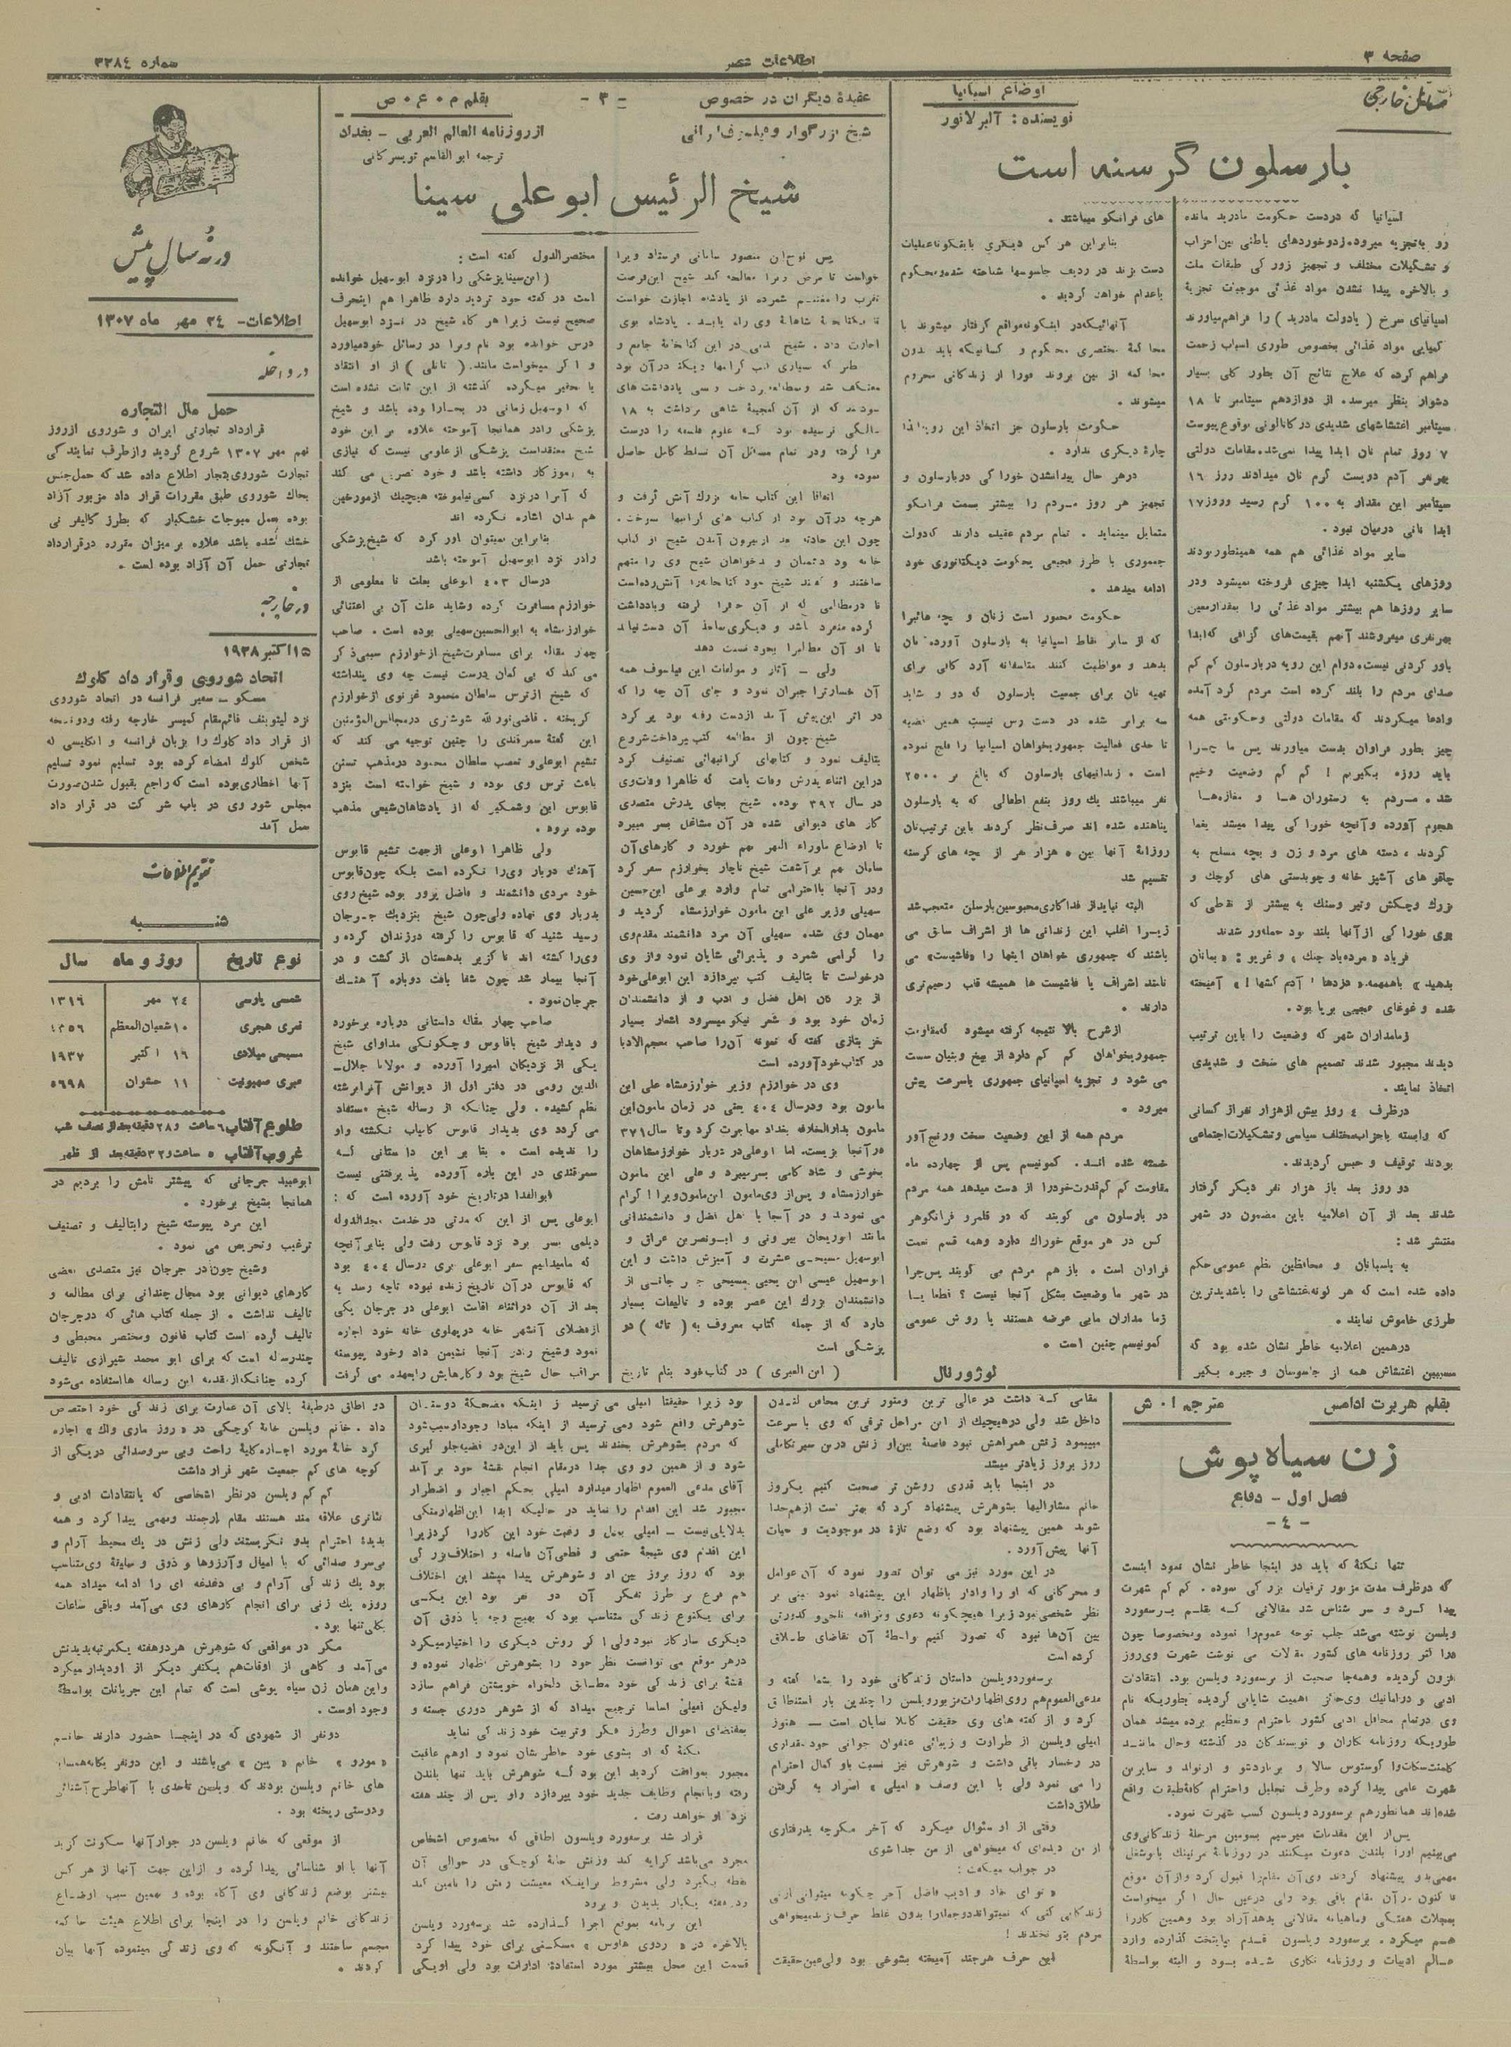 صفحه ۳
اطلاعات عصر
شماره ۳۲۸٤
مسائل خارجی
اوضاع اسپانیا
نویسنده: آلبر لانور
بارسلون گرسنه است
اسپانیا که دردست حکومت مادرید مانده
رو به تجزیه میرود. زدوخوردهای باطنی بین احزاب
و تشکیلات مختلف و تجهیز زور کی طبقات ملت
و بالاخره پیدا نشدن مواد غذائی موجبات تجزیهٔ
اسپانیای سرخ ( یادولت مادرید ) را فراهم میاورند
کمیابی مواد غذائی بخصوص طوری اسباب زحمت
فراهم کرده که علاج نتایج آن بطور کلی بسیار
دشوار بنظر میرسد. از دوازدهم سپتامبر تا ۱۸
سپتامبر اغتشاشهای شدیدی در کاتالونی بوقوع پیوست
۷ روز تمام نان ابدا پیدا نمی‌شد. مقامات دولتی
بهر هر آدم دویست گرم نان میدادند روز ۱٦
سپتامبر این مقدار به ۱۰۰ گرم رسید و روز ۱۷
ابدا نانی درمیان نبود.
سایر مواد غذائی هم همه همینطور بودند
روزهای یکشنبه ابدا چیزی فروخته نمیشود ودر
سایر روزها هم بیشتر مواد غذائی را بمقدار معین
بهر نفری میفروشند آنهم بقیمت‌های گزافی که ابدا
باور کردنی نیست. دوام این رویه در بارسلون کم کم
صدای مردم را بلند کرده است مردم گرد آمده
وادعا میکردند که مقامات دولتی وحکومتی همه
چیز بطور فراوان بدست میاورند پس ما چرا
باید روزه بگیریم ! کم کم وضعیت وخیم
شد. مردم به رستوران ها و مغازه‌ها
هجوم آورده وآنچه خوراکی پیدا میشد یغما
کردند، دسته های مرد و زن و بچه مسلح به
چاقو های آشپز خانه و چوبدستی های کوچک و
بزرک و چکش و تبر وسنک به بیشتر از نقاطی که
بوی خوراکی از آنها بلند بود حمله‌ور شدند
فریاد «مرده‌باد جنک» و غریو: «بمانان
بدهید» باهمهمه «دزدها ! آدم کشها !» آمیخته
شده و غوغای عجیبی برپا بود.
زمامداران شهر که وضعیت را باین ترتیب
دیدند مجبور شدند تصمیم های سخت و شدیدی
اتخاذ نمایند.
درظرف ٤ روز بیش از هزار نفر از کسانی
که وابسته باحزاب مختلف سیاسی و تشکیلات اجتماعی
بودند توقیف و حبس گردیدند.
دو روز بعد باز هزار نفر دیگر گرفتار
شدند بعد از آن اعلامیه باین مضمون در شهر
منتشر شد:
به پاسبانان و محافظین نظم عمومی حکم
داده شده است که هر گونه اغتشاشی را باشدیدترین
طرزی خاموش نمایند.
درهمین اعلامیه خاطر نشان شده بود که
مسببین اغتشاش همه از جاسوسان و جیره بگیر
های فرانکو میباشند.
بنابراین هر کس دیگری باینگونه عملیات
دست بزند در ردیف جاسوسها شناخته شده ومحکوم
باعدام خواهد گردید.
آنهائیکه در اینگونه مواقع گرفتار میشوند با
محاکمهٔ مختصری محکوم و کسانیکه باید بدون
محاکمه از بین بروند فورا از زندگانی محروم
میشوند.
حکومت بارسلون جز اتخاذ این رویه ابدا
چارهٔ دیگری ندارد.
درهر حال پیدانشدن خوراکی دربارسلون و
تجهیز هر روز مردم را بیشتر بسمت فرانکو
متمایل مینماید. تمام مردم عقیده دارند که دولت
جمهوری با طرز فجیعی بحکومت دیکتاتوری خود
ادامه میدهد.
حکومت مجبور است زنان و بچه هائیرا
که از سایر نقاط اسپانیا به بارسلون آورده نان
بدهد و مواظبت کنند متاسفانه آرد کافی برای
تهیه نان برای جمعیت بارسلون که دو و شاید
سه برابر شده در دست رس نیست همین قضیه
تا حدی فعالیت جمهوریخواهان اسپانیا را فلج نموده
است. زندانیهای بارسلون که بالغ بر ۲۵۰۰
نفر میباشند یک روز بنفع اطفالی که به بارسلون
پناهنده شده اند صرف‌نظر کردند باین ترتیب نان
روزانهٔ آنها بین ۵ هزار نفر از بچه های گرسنه
تقسیم شد
البته نباید از فداکاری محبوسین بارسلن متعجب شد
زیرا اغلب این زندانی ها از اشراف سابق می
باشند که جمهوری خواهان اینها را «فاشیست» می
نامند اشراف یا فاشیست ها همیشه قلب رحیم‌تری
دارند.
ازشرح بالا نتیجه گرفته میشود که مقاومت
جمهوریخواهان کم کم دارد از بیخ وبنیان سست
می شود و تجزیه اسپانیای جمهوری باسرعت پیش
میرود.
مردم همه از این وضعیت سخت ورنج آور
خسته شده اند. کمونیسم پس از چهارده ماه
مقاومت کم کم قدرت خودرا از دست میدهد همه مردم
در بارسلون می گویند که در قلمرو فرانگو هر
کس در هر موقع خوراک دارد وهمه قسم نعمت
فراوان است. باز هم مردم می گویند پس چرا
در شهر ما وضعیت بشکل آنجا نیست ؟ قطعا یا
زمامداران مابی عرضه هستند یا روش عمومی
کمونیسم چنین است.
لوژورنال
عقیدهٔ دیگران در خصوص
- ۳ -
بقلم م ۰ ع ۰ ص
شیخ بزرگوار وفیلسوف ایرانی
از روزنامه العالم العربی - بغداد
ترجمه ابوالقاسم تویسرکانی
شیخ الرئیس ابو علی سینا
پس نوح‌بن منصور سامانی فرستاد ویرا
خواست تا مرض ویرا معالجه کند شیخ این فرصت
تقرب را مغتنم شمرده از پادشاه اجازت خواست
تا بکتابخانهٔ شاهانهٔ وی راه یابد. پادشاه بوی
اجازت داد. شیخ مدتی در این کتابخانهٔ جامع و
سودمند که از آن گنجینهٔ شاهی برداشت به ۱۸
سالگی نرسیده بود که علوم فلسفه را درست
فرا گرفته ودر تمام مسائل آن تسلط کامل حاصل
نموده بود
اتفاقا این کتاب خانه بزرک آتش گرفت و
هرچه درآن بود از کتاب های گرانبها سوخت.
چون این حادثه بعد از بیرون آمدن شیخ از کتاب
خانه بود دشمنان و بدخواهان شیخ وی را متهم
ساختند و گفتند شیخ خود کتابخانه را آتش زده است
تا درمطالبی که از آن جا فرا گرفته ویادداشت
کرده منفرد باشد و دیگری مانند آن دست نیابد
تا او آن مطالب را بخود نسبت دهد
ولی - آثار و مولفات این فیلسوف همه
آن خسارت را جبران نمود و جای آن چه را که
در اثر این پیش آمد از دست رفته بود پر کرد
شیخ چون از مطالعه کتب بپرداخت شروع
بتالیف نمود و کتابهای گرانبهائی تصنیف کرد
دراین اثناء پدرش وفات یافت که ظاهرا وفات وی
در سال ۳۹۲ بوده. شیخ بجای پدرش متصدی
کار های دیوانی شده در آن مشاغل بسر میبرد
تا اوضاع ماوراء النهر بهم خورد و کارهای آن
سامان هم بر آشفت شیخ ناچار بخوارزم سفر کرد
ودر آنجا بااحترامی تمام وارد بر علی ابن حسین
سهیلی وزیر علی ابن مامون خوارزمشاه گردید و
مهمان وی شد. سهیلی آن مرد دانشمند مقدم وی
را گرامی شمرد و پذیرائی شایان نمود واز وی
درخواست تا بتالیف کتب بپردازد این ابوعلی خود
از بزرگان اهل فضل و ادب و از دانشمندان
زمان خود بود و شعر نیکو میسرود اشعار بسیار
نغز بتازی گفته که نمونه آن را صاحب معجم الادبا
در کتاب خود آورده است
وی در خوارزم وزیر خوارزمشاه علی ابن
مامون بود ودرسال ٤٠٤ یعنی در زمان مامون ابن
مامون بدارالخلافه بغداد مهاجرت کرد وتا سال
درآنجا بزیست. اما ابوعلی در دربار خوارزمشاهان
بخوشی و شاد کامی بسر میبرد و علی ابن مامون
خوارزمشاه و پس از وی مامون ابن مامون ویرا اکرام
می نمودند و در آنجا با اهل فضل و دانشمندانی
مانند ابوریحان بیرونی و ابونصر بن عراق و
ابوسهل مسیحی عشرت و آمیزش داشت و این
ابوسهل عیسی ابن یحیی مسیحی جرجانی از
دانشمندان بزرک این عصر بوده و تالیفات بسیار
دارد که از جمله کتاب معروف به ( مائه ) در
پزشکی است
( ابن العبری ) در کتاب خود بنام تاریخ
مختصر الدول گفته است:
(ابن سینا پزشکی را درنزد ابوسهیل خوانده
است در گفته خود تردید دارد ظاهرا هم اینحرف
صحیح نیست زیرا هر گاه شیخ در نزد ابوسهیل
درس خوانده بود نام ویرا در رسائل خود میاورد
و اگر میخواست مانند ( ناتلی ) از او انتقاد
یا تحقیر میکرده گذشته از این ثابت نشده است
که ابوسهیل زمانی در بخارا بوده باشد و شیخ
پزشکی را در همانجا آموخته علاوه بر این خود
شیخ معتقد است پزشکی از علومی نیست که نیازی
به آموزگار داشته باشد و خود تصریح می کند
که آنرا درنزد کسی نیاموخته هیچیک از مورخین
هم بدان اشاره نکرده اند
بنابراین نمیتوان باور کرد که شیخ پزشکی
رادر نزد ابوسهیل آموخته باشد
درسال ٤٠٣ ابوعلی بعلت نا معلومی از
خوارزم مسافرت کرده وشاید علت آن بی اعتنائی
خوارزمشاه به ابوالحسین سهیلی بوده است. صاحب
چهار مقاله برای مسافرت شیخ از خوارزم سببی ذکر
می کند که بی گمان درست نیست چه وی پنداشته
که شیخ از ترس سلطان محمود غزنوی از خوارزم
گریخته. قاضی نورالله شوشتری درمجالس المؤمنین
این گفتهٔ سمرقندی را چنین توجیه می کند که
تشیع ابوعلی و تعصب سلطان محمود درمذهب تسنن
باعث ترس وی بوده و شیخ خواسته است بنزد
قابوس ابن وشمگیر که از پادشاهان شیعی مذهب
بوده برود.
ولی ظاهرا ابوعلی از جهت تشیع قابوس
آهنک دربار وی را نکرده است بلکه چون قابوس
خود مردی دانشمند و فاضل پرور بوده شیخ روی
بدربار وی نهاده ولی چون شیخ بنزدیک جرجان
رسید شنید که قابوس را گرفته درزندان کرده و
وی را کشته اند ناگزیر بدهستان باز گشت و در
آنجا بیمار شد چون شفا یافت دوباره آهنک
جرجان نمود.
صاحب چهار مقاله داستانی درباره برخورد
و دیدار شیخ باقابوس و چگونگی مداوای شیخ
یکی از نزدیکان امیر را آورده و مولانا جلال
الدین رومی در دفتر اول از دیوانش آنرا برشته
نظم کشیده. ولی چنانکه از رساله شیخ مستفاد
می گردد وی بدیدار قابوس کامیاب نگشته واو
را ندیده است. بنا بر این داستانی که
سمرقندی در این باره آورده پذیرفتنی نیست
ابوالفدا در تاریخ خود آورده است که:
ابوعلی پس از این که مدتی در خدمت مجدالدوله
دیلمی بسر برد نزد قابوس رفت ولی بنابر آنچه
که مامیدانیم سفر ابوعلی بری درسال ٤٠٤ بود
که قابوس درآن تاریخ زنده نبوده تاچه رسد به
بعد از آن دراثناء اقامت ابوعلی در جرجان یکی
از فضلای آنشهر خانه درپهلوی خانه خود اجاره
نمود وشیخ رادر آنجا نشیمن داد وخود پیوسته
مراقب حال شیخ بود وکارهایش رابعهده می گرفت
در نه سال پیش
اطلاعات - ۲٤ مهر ماه ۱۳۰۷
در داخله
حمل مال التجاره
قرارداد تجارتی ایران و شوروی از روز
نهم مهر ۱۳۰۷ شروع گردید وازطرف نمایندگی
تجارت شوروی بتجار اطلاع داده شد که حمل جنس
بخاک شوروی طبق مقررات قرار داد مزبور آزاد
بوده حمل میوجات خشکبار که بطرز کالیفرنی
خشک شده باشد علاوه بر میزان مقرره درقرارداد
تجارتی حمل آن آزاد بوده است.
در خارجه
۱۵ اکتبر ۱۹۲۸
اتحاد شوروی و قرار داد کلوک
مسکو - سفیر فرانسه در اتحاد شوروی
نزد لیتوینف قائم‌مقام کمیسر خارجه رفته ودو نسخه
از قرار داد کلوک را بزبان فرانسه و انگلیسی که
شخص کلوک امضاء کرده بود تسلیم نمود تسلیم
آنها اخطاری بوده است که راجع بقبول شدن صورت
مجلس شوروی در باب شرکت در قرار داد
بعمل آمد
تقویم اطلاعات
شنبه
نوع تاریخ | روز و ماه | سال
شمسی پارسی | ۲٤ مهر | ۱۳۱٦
قمری هجری | ۱۰ شعبان المعظم | ۱۳۵٦
مسیحی میلادی | ۱٦ اکتبر | ۱۹۳۷
عبری صهیونیت | ۱۱ حشوان | ۵٦۹۸
طلوع آفتاب ٦ ساعت و ۲۸ دقیقه بعد از نصف شب
غروب آفتاب ۵ ساعت و ۳۲ دقیقه بعد از ظهر
ابوعبید جرجانی که پیشتر نامش را بردیم در
همانجا بشیخ برخورد.
این مرد پیوسته شیخ رابتالیف و تصنیف
ترغیب وتحریص می نمود.
وشیخ چون در جرجان نیز متصدی بعضی
کارهای دیوانی بود مجال چندانی برای مطالعه و
تالیف نداشت. از جمله کتاب هائی که درجرجان
تالیف کرده است کتاب قانون ومختصر مجسطی و
چندرساله است که برای ابو محمد شیرازی تالیف
کرده چنانکه از مقدمه این رساله ها استفاده می‌شود
بقلم هربرت ادامس
مترجم ا. ش
زن سیاه پوش
فصل اول - دفاع
- ٤ -
تنها نکتهٔ که باید در اینجا خاطر نشان نمود اینست
که درظرف مدت مزبور ترقیات بزرگی نموده. کم کم شهرت
پیدا کرد و سر شناس شد مقالاتی که بقلم برسفورد
ویلسن نوشته می‌شد جلب توجه عموم را نموده ومخصوصا چون
در اکثر روزنامه های کشور مقالات می نوشت شهرت وی روز
افزون گردیده وهمه‌جا صحبت از برسفورد ویلسن بود. انتقادات
ادبی و دراماتیک وی حائز اهمیت شایانی گردیده بطوریکه نام
وی درتمام محافل ادبی کشور باحترام وتعظیم برده میشد همان
طوریکه روزنامه نگاران و نویسندگان در گذشته وحال مانند
کلمنت سکات و اگوستوس سالا و برناردشو و ارنولد و سایرین
شهرت عامی پیدا کرده وطرف تجلیل واحترام کافهٔ طبقات واقع
شده‌اند همانطور هم برسفورد ویلسون کسب شهرت نمود.
پس از این مقدمات میرسیم بسومین مرحلهٔ زندگانی وی
می‌بینیم اورا بلندن دعوت میکنند در روزنامهٔ مرنینک پا وشغل
مهمی‌بدو پیشنهاد کردند وی آن مقام را قبول کرد واز آن موقع
تا کنون در آن مقام باقی بود ولی درعین حال اگر میخواست
بمجلات هفتگی وماهیانه مقالاتی بدهد آزاد بود وهمین کاررا
هم میکرد. برسفورد ویلسون قدم بپایتخت گذارده وارد
عالم ادبیات و روزنامه نگاری شده بود و البته بواسطهٔ
مقامی که داشت در عالی ترین ومنور ترین محافل لندن
داخل شد ولی درهیچیک از این مراحل ترقی که وی با سرعت
میپیمود زنش همراهش نبود فاصلهٔ بین او زنش دراین سیر تکاملی
روز بروز زیادتر میشد
در اینجا باید قدری روشن تر صحبت کنیم یکروز
خانم مشارالیها بشوهرش پیشنهاد کرد که بهتر است از هم جدا
شوند همین پیشنهاد بود که وضع تازهٔ در موجودیت و حیات
آنها پیش آورد.
در این مورد نیز می توان تصور نمود که آن عوامل
و محرکاتی که او را وادار باظهار این پیشنهاد نمود مبنی بر
نظر شخصی نبود زیرا هیچگونه دعوی ومرافعه تلخی و کدورتی
بین آن‌ها نبود که تصور کنیم واسطهٔ آن تقاضای طلاق
کرده است
برسفورد ویلسن داستان زندگانی خود را بشما گفته و
مدعی العموم هم روی اظهارات مزبور ویلسن را چندین بار استنطاق
کرد و از گفته های وی حقیقت کاملا نمایان است - هنوز
امیلی ویلسن از طراوت و زیبائی عنفوان جوانی خود مقداری
در رخسار باقی داشت و شوهرش نیز نسبت باو کمال احترام
را می نمود ولی با این وصف «امیلی» اصرار به گرفتن
طلاق داشت
وقتی از او سئوال میکرد که آخر مگر چه بدرفتاری
از من دیده‌ای که میخواهی از من جدا شوی
در جواب میگفت:
« تو ای نقاد و ادیب فاضل آخر چگونه میتوانی با زنی
زندگانی کنی که نمیتواند دو جمله‌را بدون غلط حرف زند میخواهی
مردم بتو نخندند !
این حرف هرچند آمیخته بشوخی بود ولی عین حقیقت
بود زیرا حقیقتا امیلی می ترسید از اینکه مضحکهٔ دوستان
شوهرش واقع شود ومی ترسید از اینکه مبادا وجود او سبب شود
که مردم بشوهرش بخندند پس باید از این دو قضیه جلو گیری
شود و از همین رو وی جدا درمقام انجام نقشهٔ خود بر آمد
آقای مدعی العموم اظهار میدارد امیلی بحکم اجبار و اضطرار
مجبور شد این اقدام را نماید در حالیکه ابدا این اظهار متکی
بدلایلی نیست - امیلی بمیل و رغبت خود این کاررا کرد زیرا
این اقدام وی نتیجهٔ حتمی و قطعی آن فاصله و اختلاف بزرگی
بود که روز بروز بین او و شوهرش پیدا میشد این اختلاف
هم فرع بر طرز تفکر آن دو نفر بود این یکی
برای یکنوع زندگی متناسب بود که بهیچ وجه با ذوق آن
دیگری سازگار نبود ولی اگر روش دیگری را اختیار میکرد
درهر موقع می توانست نظر خود را بشوهرش اظهار نموده و
نقشهٔ برای زندگی خود مطابق دلخواه خویشتن فراهم سازد
ولیکن امیلی اساسا ترجیح میداد که از شوهر دوری جسته و
بمقتضای احوال وطرز فکر وتربیت خود زندگی نماید
نکتهٔ که او بشوی خود خاطر نشان نمود و اوهم عاقبت
مجبور بموافقت گردید این بود که شوهرش باید تنها بلندن
رفته وبانجام وظایف جدید خود بپردازد واو پس از چند هفته
نزد او خواهد رفت.
قرار شد برسفورد ویلسون اطاقی که مخصوص اشخاص
مجرد می‌باشد کرایه کند وزنش خانهٔ کوچکی در حوالی آن
نقطه بگیرد ولی مشروط براینکه معیشت زنش را تامین کند
و در هفته یکبار بدیدن و برود
این برنامه بموقع اجرا گذارده شد برسفورد ویلسن
بالاخره در « ردوی هاوس » مسکنی برای خود پیدا کرد
قسمت این محل بیشتر مورد استفادهٔ ادارات بود ولی او یکی
دو اطاق درطبقهٔ بالای آن عمارت برای زندگی خود اختصاص
داد. خانم ویلسن خانهٔ کوچکی در « روز ماری واک » اجاره
کرد خانهٔ مورد اجاره کلبهٔ راحت وبی سروصدائی دریکی از
کوچه های کم جمعیت شهر قرار داشت
کم کم ویلسن درنظر اشخاصی که بانتقادات ادبی و
تئاتری علاقه مند هستند مقام ارجمند ومهمی پیدا کرد و همه
بدیدهٔ احترام بدو نگریستند ولی زنش در یک محیط آرام و
بی‌سرو صدائی که با امیال وآرزوها و ذوق و سلیقهٔ وی متناسب
بود یک زندگی آرام و بی دغدغه ای را ادامه میداد همه
روزه یک زنی برای انجام کارهای وی می‌آمد وباقی ساعات
بکلی تنها بود.
مگر در مواقعی که شوهرش هردوهفته یکمرتبه بدیدنش
می‌آمد و گاهی از اوقات‌هم یکنفر دیگر از اودیدار میکرد
واین همان زن سیاه پوشی است که تمام این جریانات بواسطهٔ
وجود اوست.
دونفر از شهودی که در اینجا حضور دارند خانم
« مورو » خانم « پین » می‌باشند و این دونفر یگانه همسایه
های خانم ویلسن بودند که ویلسن تاحدی با آنها طرح آشنائی
ودوستی ریخته بود.
از موقعی که خانم ویلسن در جوار آنها سکونت گزید
آنها با او شناسائی پیدا کرده و ازاین جهت آنها از هر کس
بیشتر بوضع زندگانی وی آگاه بوده و بهمین سبب اوضاع
زندگانی خانم ویلسن را در اینجا برای اطلاع هیئت حاکمه
مجسم ساختند و آنگونه که وی زندگی مینموده آنها بیان
کردند.